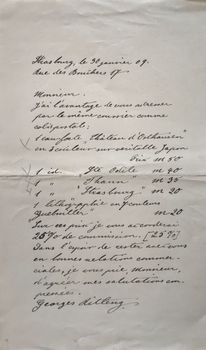 Strasbourg, le 30 janvier 09.
Rue des Bouchers 17
Monsieur.
J'ai l'avantage de vous adresser
par le même courrier comme
colis postale:
1 eau forte "Château d'Osthausen"
en 3 couleur sur véritable Japon
Prix m 50
1 id. "Ste Odile m 40
1 " "Thann" m 30
1 " "Strasbourg" m 20
1 lithographie en 7 couleurs
Guebwiller" m 20
Sur ces prix je vous accorderai
25% de commission. [25%]
Dans l'espoir de rester avec vous
en bonnes relations commer-
ciales, je vous prie, Monsieur,
d'agréer mes salutations em-
pressées.
Georges